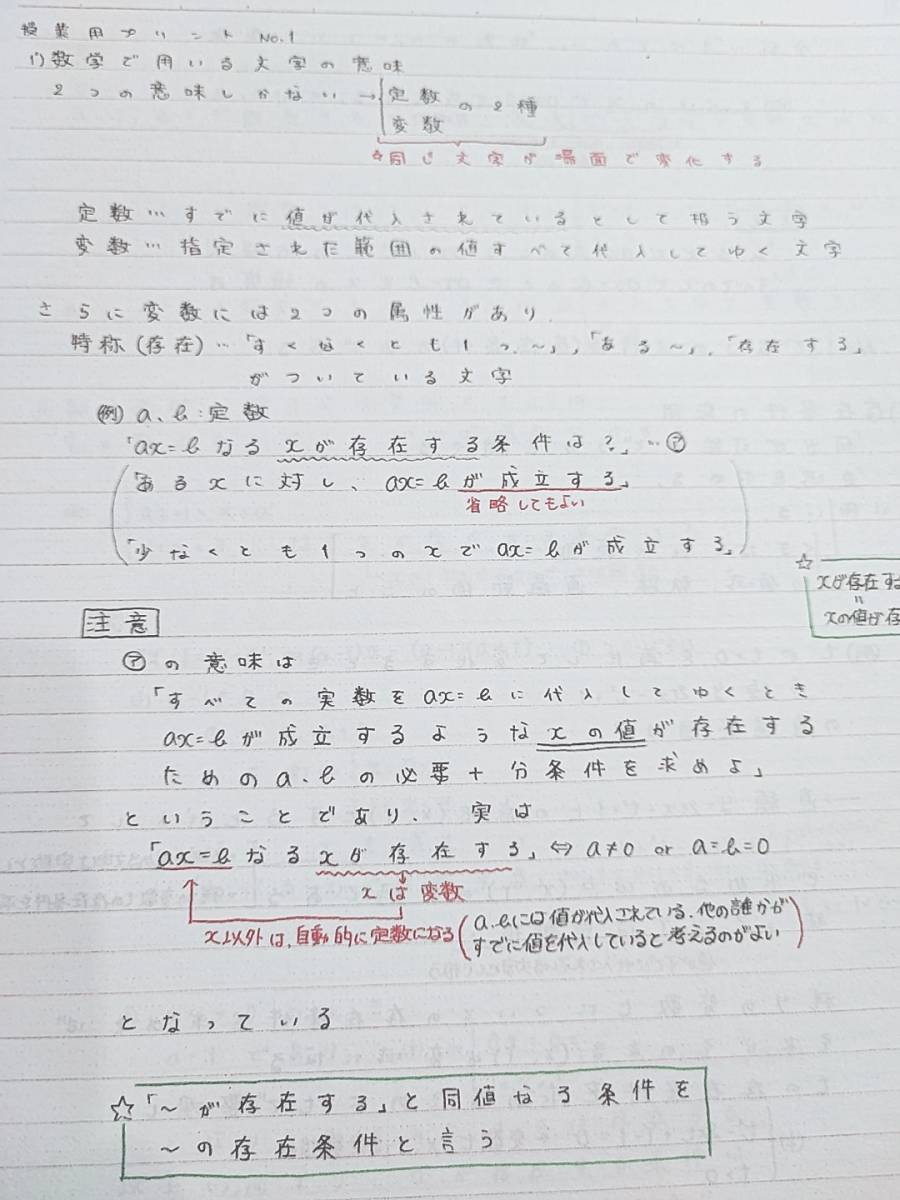 授業用プリント No.1
1) 数学で用いる文字の意味
2つの意味しかない→{定数 変数 の2種
☆同じ文字が場面で変化する
定数…すでに値が代入されているとして扱う文字
変数…指定された範囲の値すべて代入してゆく文字
さらに変数には2つの属性があり
特称(存在)…「すくなくとも1つ、~」,「ある~」,「存在する」
がついている文字
(例) a、b:定数
「ax=bなるxが存在する条件は?」…㋐
「あるxに対し、ax=bが成立する」
省略してもよい
「少なくとも1つのxでax=bが成立する」
☆
xが存在す
〃
xの値が存
注意
㋐の意味は
「すべての実数をax=bに代入してゆくとき
ax=bが成立するようなxの値が存在する
ためのa、bの必要十分条件を求めよ」
ということであり、実は
「ax=bなるxが存在する」⇔ a≠0 or a=b=0
xは変数
x以外は、自動的に定数になる
(a、bには値が代入されている、他の誰かが
すでに値を代入していると考えるのがよい)
となっている
☆「~が存在する」と同値なる条件を
~の存在条件と言う